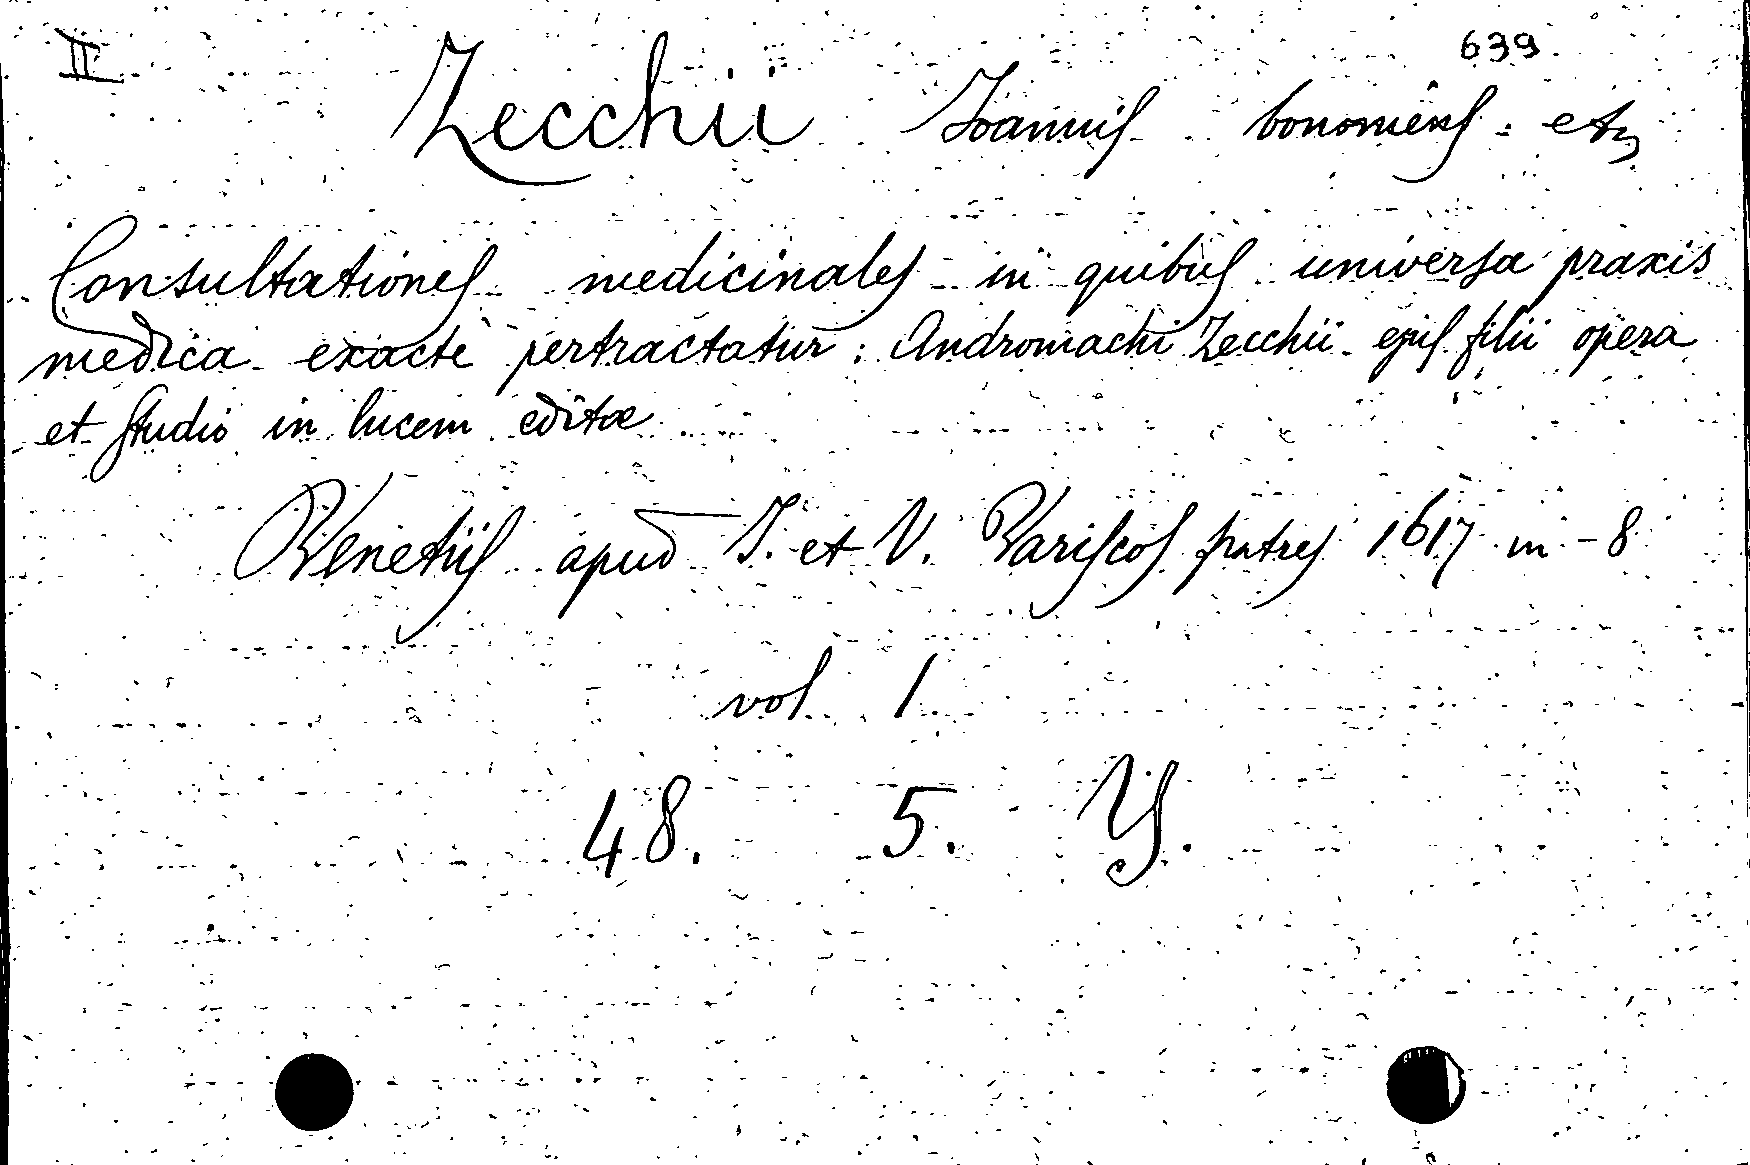 II 639
Zecchii Ioannis bononiens: etc
Consultationes medicinales in quibus universa praxis
medica exacte pertractatur: Andromachi Zecchii ejus filii opera
et studio in lucem editæ
Venetiis apud I. et V. Variscos fratres 1617 in-8
vol 1
48. 5. Y.